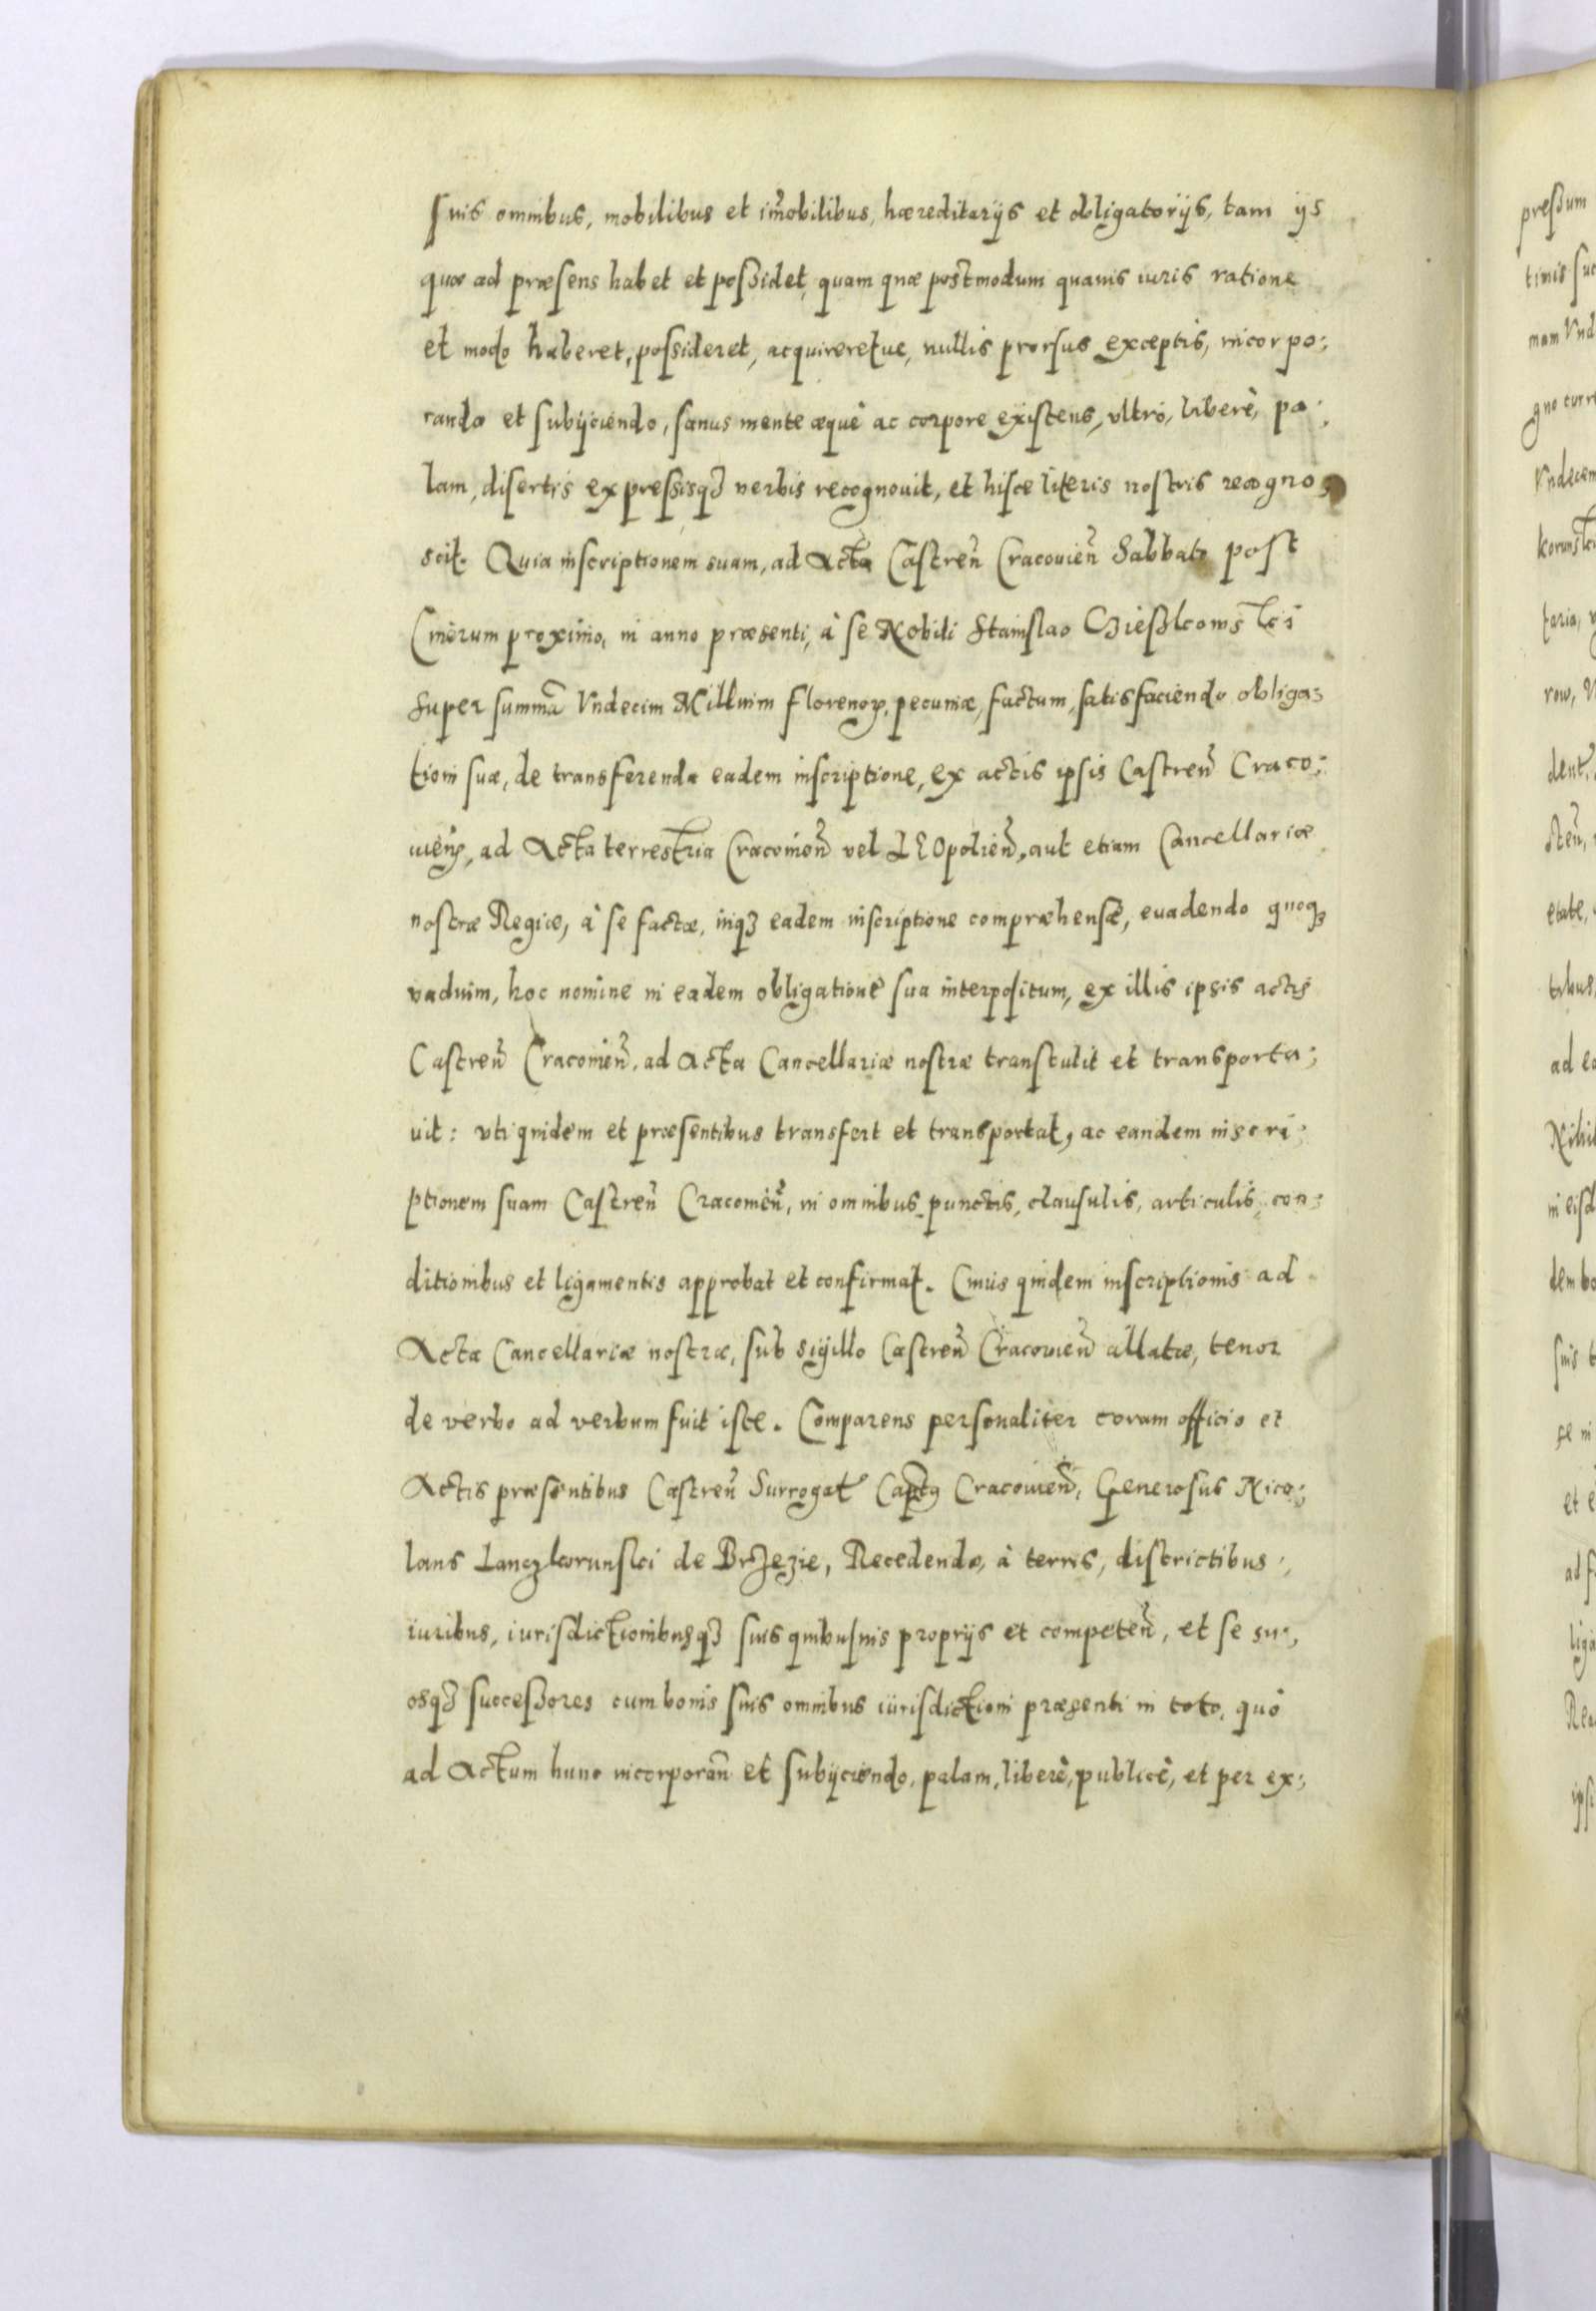 suis omnibus, mobilibus et im̃obilibus, hæreditarijs et obligatorijs, tam ijs
quæ ad præsens habet et possidet, quam quæ postmodum quauis iuris ratione
et modo haberet, possideret, acquireretue, nullis prorsus exceptis, incorpo:
rando et subijciendo, sanus mente æquè ac corpore existens, vltrò, liberè, pa:
lam, disertis expressisq3 verbis recognouit, et hisce literis nostris recogno:
scit. Quia inscriptionem suam, ad Acta Castreñ Cracouieñ Sabbato post
Cinerum proximo, in anno præsenti, à se Nobili Stanislao Czieszkowski
super summã Vndecim Millium florenoꝝ pecuniæ, factum, satisfaciendo obliga:
tioni suæ, de transferenda eadem inscriptione, ex actis ipsis Castreñ Craco:
uieñ, ad Acta terrestria Cracouieñ vel LEOpolieñ, aut etiam Cancellariæ
nostræ Regiæ, à se factæ, inq3 eadem inscriptione compræhensæ, euadendo quoq3
vadium, hoc nomine in eadem obligatione sua interpositum, ex illis ipsis actis
Castreñ Cracouieñ, ad Acta Cancellariæ nostræ transtulit et transporta:
uit: vti quidem et præsentibus transfert et transportat, ac eandem inscri:
ptionem suam Castreñ Cracouieñ, in omnibus punctis, clausulis, articulis, con:
ditionibus et ligamentis approbat et confirmat. Cuius quidem inscriptionis ad
Acta Cancellariæ nostræ, sub sigillo Castreñ Cracouieñ allatæ, tenor
de verbo ad verbum fuit iste. Comparens personaliter coram officio et
Actis præsentibus Castreñ Surrogat Cap̃tꝰ Cracouieñ, Generosus Nico:
laus Lanczkorunski de Brzezie, Recedendo, à terris, districtibus,
iuribus, iurisdictionibusq3 suis quibusuis proprijs et competeñ, et se su:
osq3 successores cum bonis suis omnibus iurisdictioni præsenti in toto, quò
ad Actum hunc incorporañ et subijciendo, palam, liberè, publicè, et per ex: